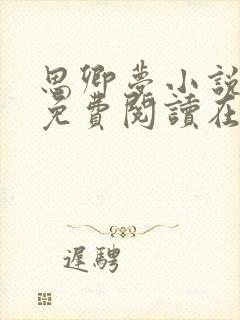 思卿梦小說
免費閱讀在
遲騁